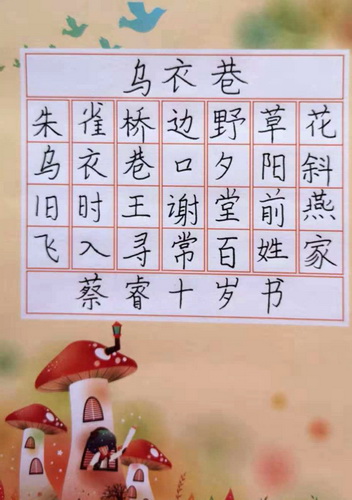 乌衣巷
朱雀桥边野草花
乌衣巷口夕阳斜
旧时王谢堂前燕
飞入寻常百姓家
蔡睿十岁书